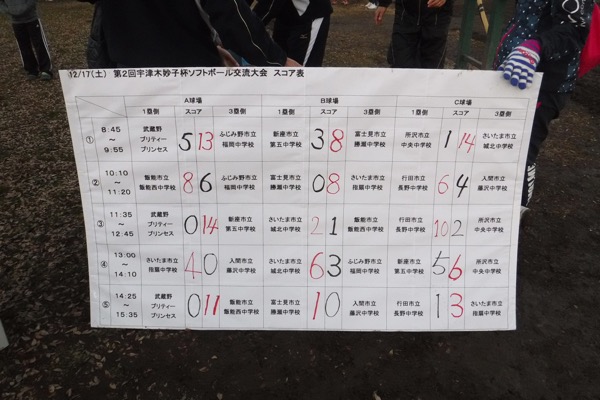 12/17(土) 第2回宇津木妙子杯ソフトボール交流大会 スコア表
A球場 B球場 C球場
1塁側 スコア 3塁側 1塁側 スコア 3塁側 1塁側 スコア 3塁側
① 8:45 ～ 9:55 武蔵野 プリティー プリンセス 5 13 ふじみ野市立 福岡中学校 新座市立 第五中学校 3 8 富士見市立 勝瀬中学校 所沢市立 中央中学校 1 14 さいたま市立 城北中学校
② 10:10 ～ 11:20 飯能市立 飯能西中学校 8 6 ふじみ野市立 福岡中学校 富士見市立 勝瀬中学校 0 8 さいたま市立 指扇中学校 行田市立 長野中学校 6 4 入間市立 藤沢中学校
③ 11:35 ～ 12:45 武蔵野 プリティー プリンセス 0 14 新座市立 第五中学校 さいたま市立 城北中学校 2 1 飯能市立 飯能西中学校 行田市立 長野中学校 10 2 所沢市立 中央中学校
④ 13:00 ～ 14:10 さいたま市立 指扇中学校 4 0 入間市立 藤沢中学校 さいたま市立 城北中学校 6 3 ふじみ野市立 福岡中学校 新座市立 第五中学校 5 6 所沢市立 中央中学校
⑤ 14:25 ～ 15:35 武蔵野 プリティー プリンセス 0 11 飯能市立 飯能西中学校 富士見市立 勝瀬中学校 1 0 入間市立 藤沢中学校 行田市立 長野中学校 1 3 さいたま市立 指扇中学校